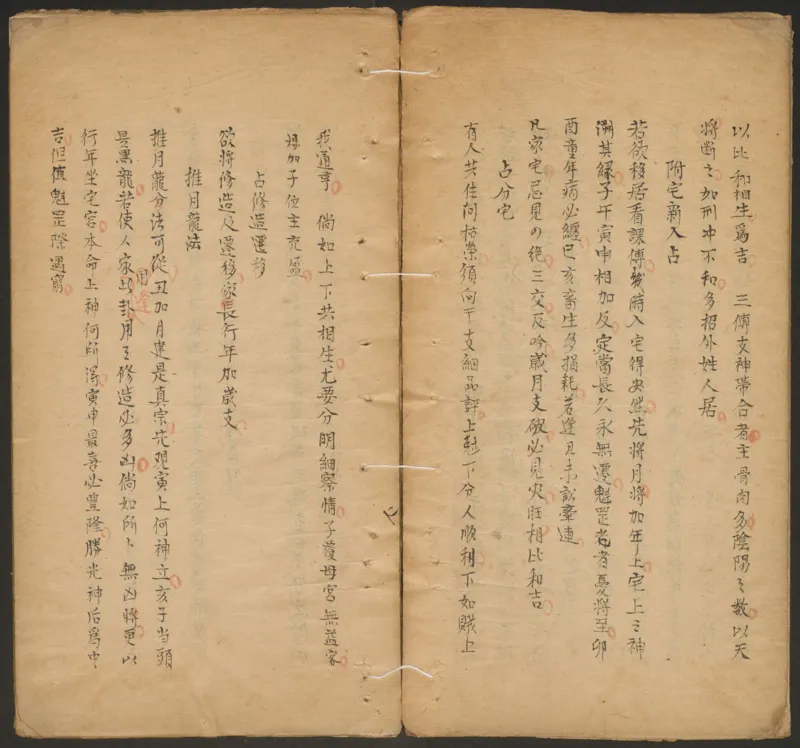 以比和相生爲吉　三傳支神帶合者主骨肉多陰陽之数以天
將断之如刑冲不和多招外姓人居
附宅新入占
若欲移居看課傳発時入宅得安然先將月將加年上宅上之神
溯其緣子午寅申相加反定當長久永無遷魁罡老者憂將至卯
酉童年病必纏巳亥畜生多損耗若逢丑未訟牽連
凡家宅忌見の绝三交反吟歲月支破必見灾旺相比和吉
占分宅
有人共住问枯榮須向干支細品評上尅下分人順利下如賊上
我通亨　倘如上下共相生尤要分明細察情子愛母宮無益客
母加子位主充盈
占修造遷移
欲將修造及遷移家長行年加歲支
推月龍法
推月龍分法可從丑加月建是真宗先观寅上何神立亥子当頭
是黒龍若使人家此卦用之修造必多凶倘如所卜無凶將更以
用
行年坐宅宮本命上神何所得寅申最喜必豐隆勝光神后爲中
吉但值魁罡際遇窮